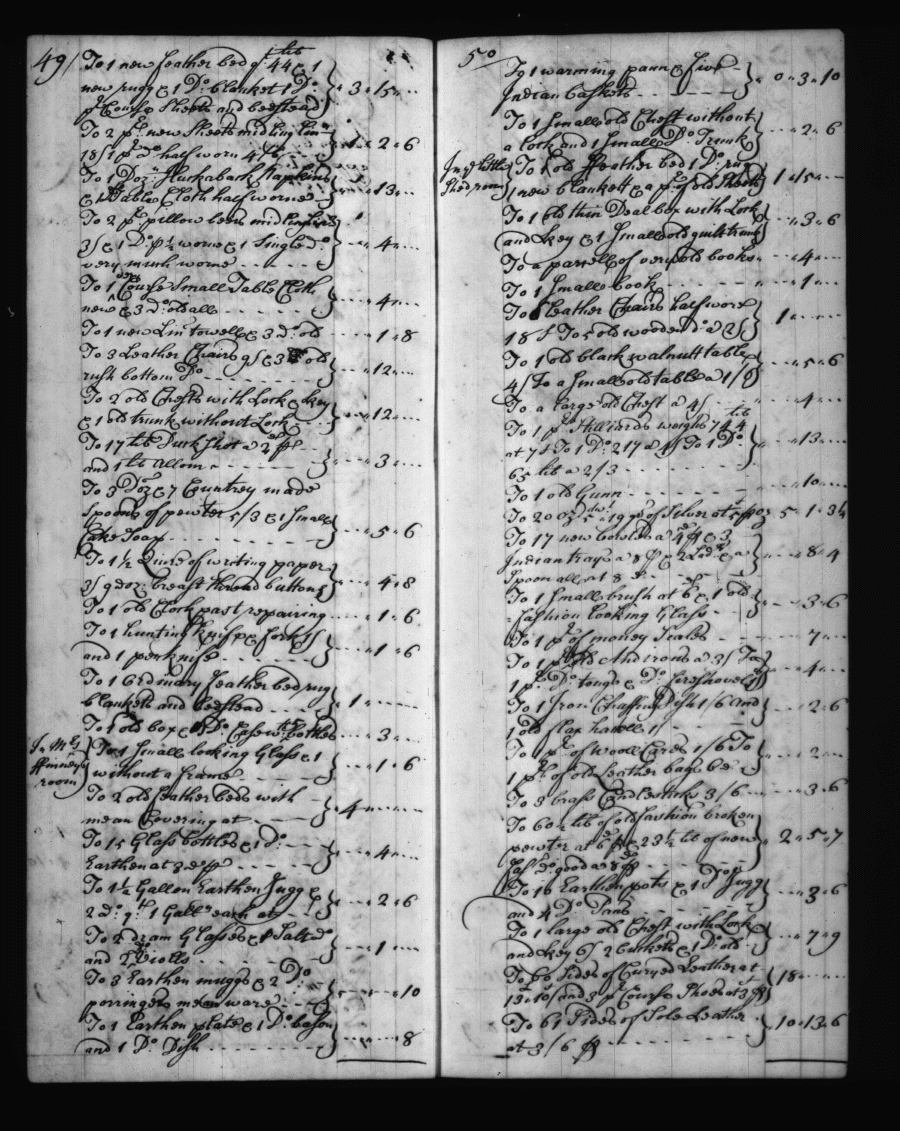 49/
To 1 new feather bed qt 44 lib & 1
new rugg & 1 Do blanket 1 Do
pr Course Sheets and bedstead } 3 " 15 " ...
To 2 pr new Sheets midling lin
18/ 1 pr do half worn 4/6 } 1 " 2 " 6
To 1 Dozn Huckaback Napkins
& 1 Table Cloth half worne } " 13 " ...
To 2 pr pillow beers mid
3/ & 1 Do pr ½ worne & 1 Single do
very much worne } " 4 " ...
To 1 very Course Small Table Cloth
new & 3 do old all } " 4 " ...
To 1 new Lin towell & 3 do old " 1 " 8
To 3 Leather Chairs 9/ & 3 old
rush bottom Do } " 12 " ...
To 2 old Chests with Lock & key
& 1 old trunk without Lock } " 12 " ...
To 17 lib Duck Shot a 2d p
and 1 lb Allom } " 3 " ...
To 3 Doz & 7 Countrey made
Spoons of pewter 5/3 & 1 Small
Cake Soap } " 5 " 6
To 1½ Quire of writing paper
3/ 9 doz: breast thread buttons } " 4 " 8
To 1 old Clock past repairing " 1 " 6
To 1 hunting knife & fork 1/
and 1 penknife } " 1 " 6
To 1 Ordinary feather bed rug
blankett and bedstead } 1 " ...
To 1 old box & 1 Do Case wth bottles " 3 " ...
In Mrs
room
To 1 Small looking Glass & 1
without a frame } " 1 " 6
To 2 old feather beds with
mean Covering at } 4 " ...
To 15 Glass bottles & 1 Do
Earthen at 3d p } " 4 " ...
To 1 1½ Gallon Earthen Jugg &
2 do qt 1 Galln each at } " 2 " 6
To 2 dram Glasses & 1 Salt do
and 2 Do Violls } " 1 " ...
To 3 Earthen muggs & 2 Do
porringers mean ware } " " 10
To 1 Earthen plate & 1 Do bason
and 1 Do Dish } " " 8
50
To 1 warming pann & five
Indian baskets } 0 " 3 " 10
To 1 Small old Chest without
a Lock and 1 Small Do Trunk } " 2 " 6
In ye little
Shed room
To 1 old feather bed 1 Do rug
1 new blankett & a pr of old Sheets } 1 " 15 " ...
To 1 old thin Deal box with Lock
and key & 1 Small old guilt trunk } " 3 " 6
To a parcell of very old books " 4 " ...
To 1 Small book " 1 " ...
To leather Chairs half wore
18/ To 5 old wooden do a 2/ } 1 " ...
To 1 old black walnutt table
4/ To a Small old table a 1/6 } " 5 " 6
To a large old Chest a 4/ " 4 " ...
To 1 pr Stilliards weighs 74 lib
at 7/ To 1 Do 217 a 4/ To 1 Do
65 lib a 2/3 } " 13 " ...
To 1 old Gunn " 10 " ...
To 20 oz 5 dwt 19 gr of Silver at 5/ p oz 5 " 1 " 3½
To 17 new bowles a 4d p & 3
Indian trays a 8d p & 2 Ladls & a
Spoon all at 8d } " 8 " 4
To 1 Small brush at 6d & 1 old
fashion looking Glass } " 3 " 6
To 1 pr of money Scales " 7 " ...
To 1 pr old Andirons a 3/ To
1 pr Do tongs & Do fireshovel } " 4 " ...
To 1 Iron Chaffing Dish 1/6 and
1 old flax hatchell 1/ } " 2 " 6
To 1 pr of Wooll Cards 1/6 To
1 pr of old leather bags 6d } " 2 " ...
To 3 brass Candlesticks 3/6 " 3 " 6
To 60½ lib of old fashion broken
pewter at 6d p & 23½ lib of new
fash do good a 8d p } 2 " 5 " 7
To 16 Earthen pots & 1 Do Jugg
and 4 Do Pans } " 3 " 6
To 1 large old Chest with Lock
and key 6/ 2 buckets & 1 Do old } " 7 " 9
To 60 Sides of Curryed Leather at
and 3 pr Course Shoes at 3/ p } 18 " ...
To 61 Sides of Sole Leather
at 3/6 p } 10 " 13 " 6